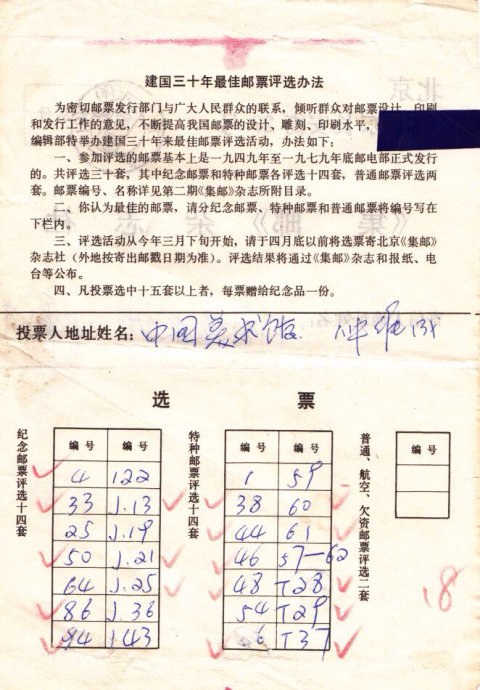 建国三十年最佳邮票评选办法
为密切邮票发行部门与广大人民群众的联系，倾听群众对邮票设计、印刷
和发行工作的意见，不断提高我国邮票的设计、雕刻、印刷水平，
编辑部特举办建国三十年来最佳邮票评选活动，办法如下：
一、参加评选的邮票基本上是一九四九年至一九七九年底邮电部正式发行
的。共评选三十套，其中纪念邮票和特种邮票各评选十四套，普通邮票评选两
套。邮票编号、名称详见第二期《集邮》杂志所附目录。
二、你认为最佳的邮票，请分纪念邮票、特种邮票和普通邮票将编号写在
下栏内。
三、评选活动从今年三月下旬开始，请于四月底以前将选票寄北京《集邮》
杂志社（外地按寄出邮戳日期为准）。评选结果将通过《集邮》杂志和报纸、电
台等公布。
四、凡投票选中十五套以上者，每票赠给纪念品一份。
投票人地址姓名：中国美术馆
选 票
纪念邮票评选十四套
编号 编号
4 122
33 J.13
25 J.19
50 J.21
64 J.25
86 J.36
94 J43
特种邮票评选十四套
编号 编号
1 59
38 60
44 61
46 57—62
48 T28
54 T29
6 T37
普通、航空、欠资邮票评选二套
编号
18